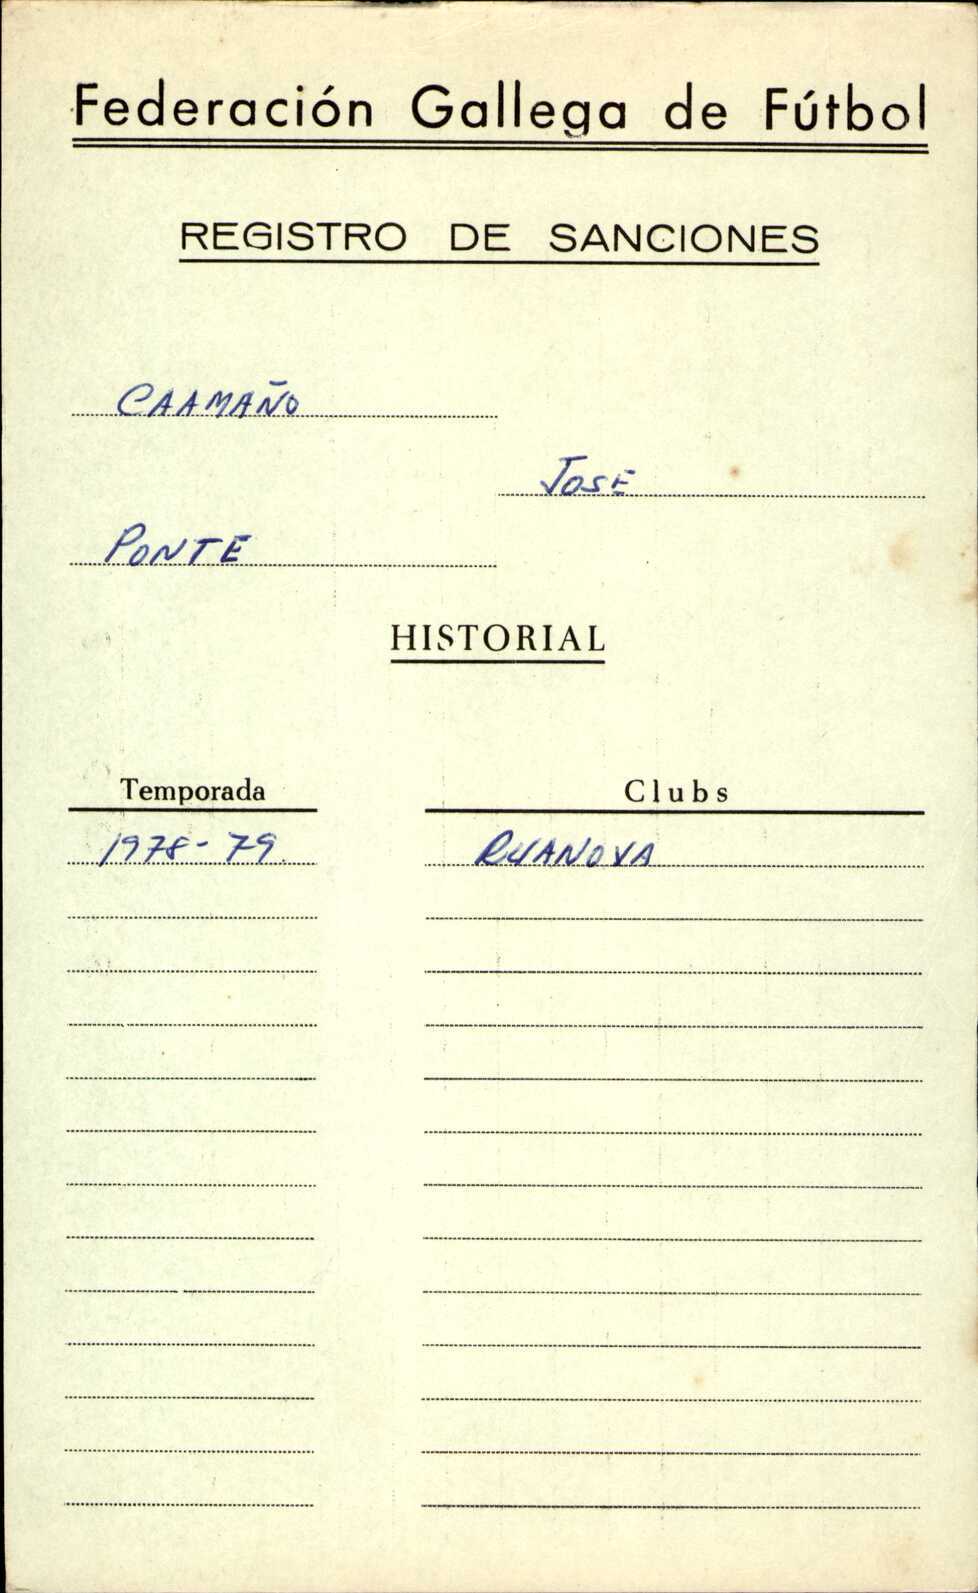 Federación Gallega de Fútbol
REGISTRO DE SANCIONES
CAAMAÑO
JOSE
PONTE
HISTORIAL
Temporada Clubs
1978-79 RUANOVA